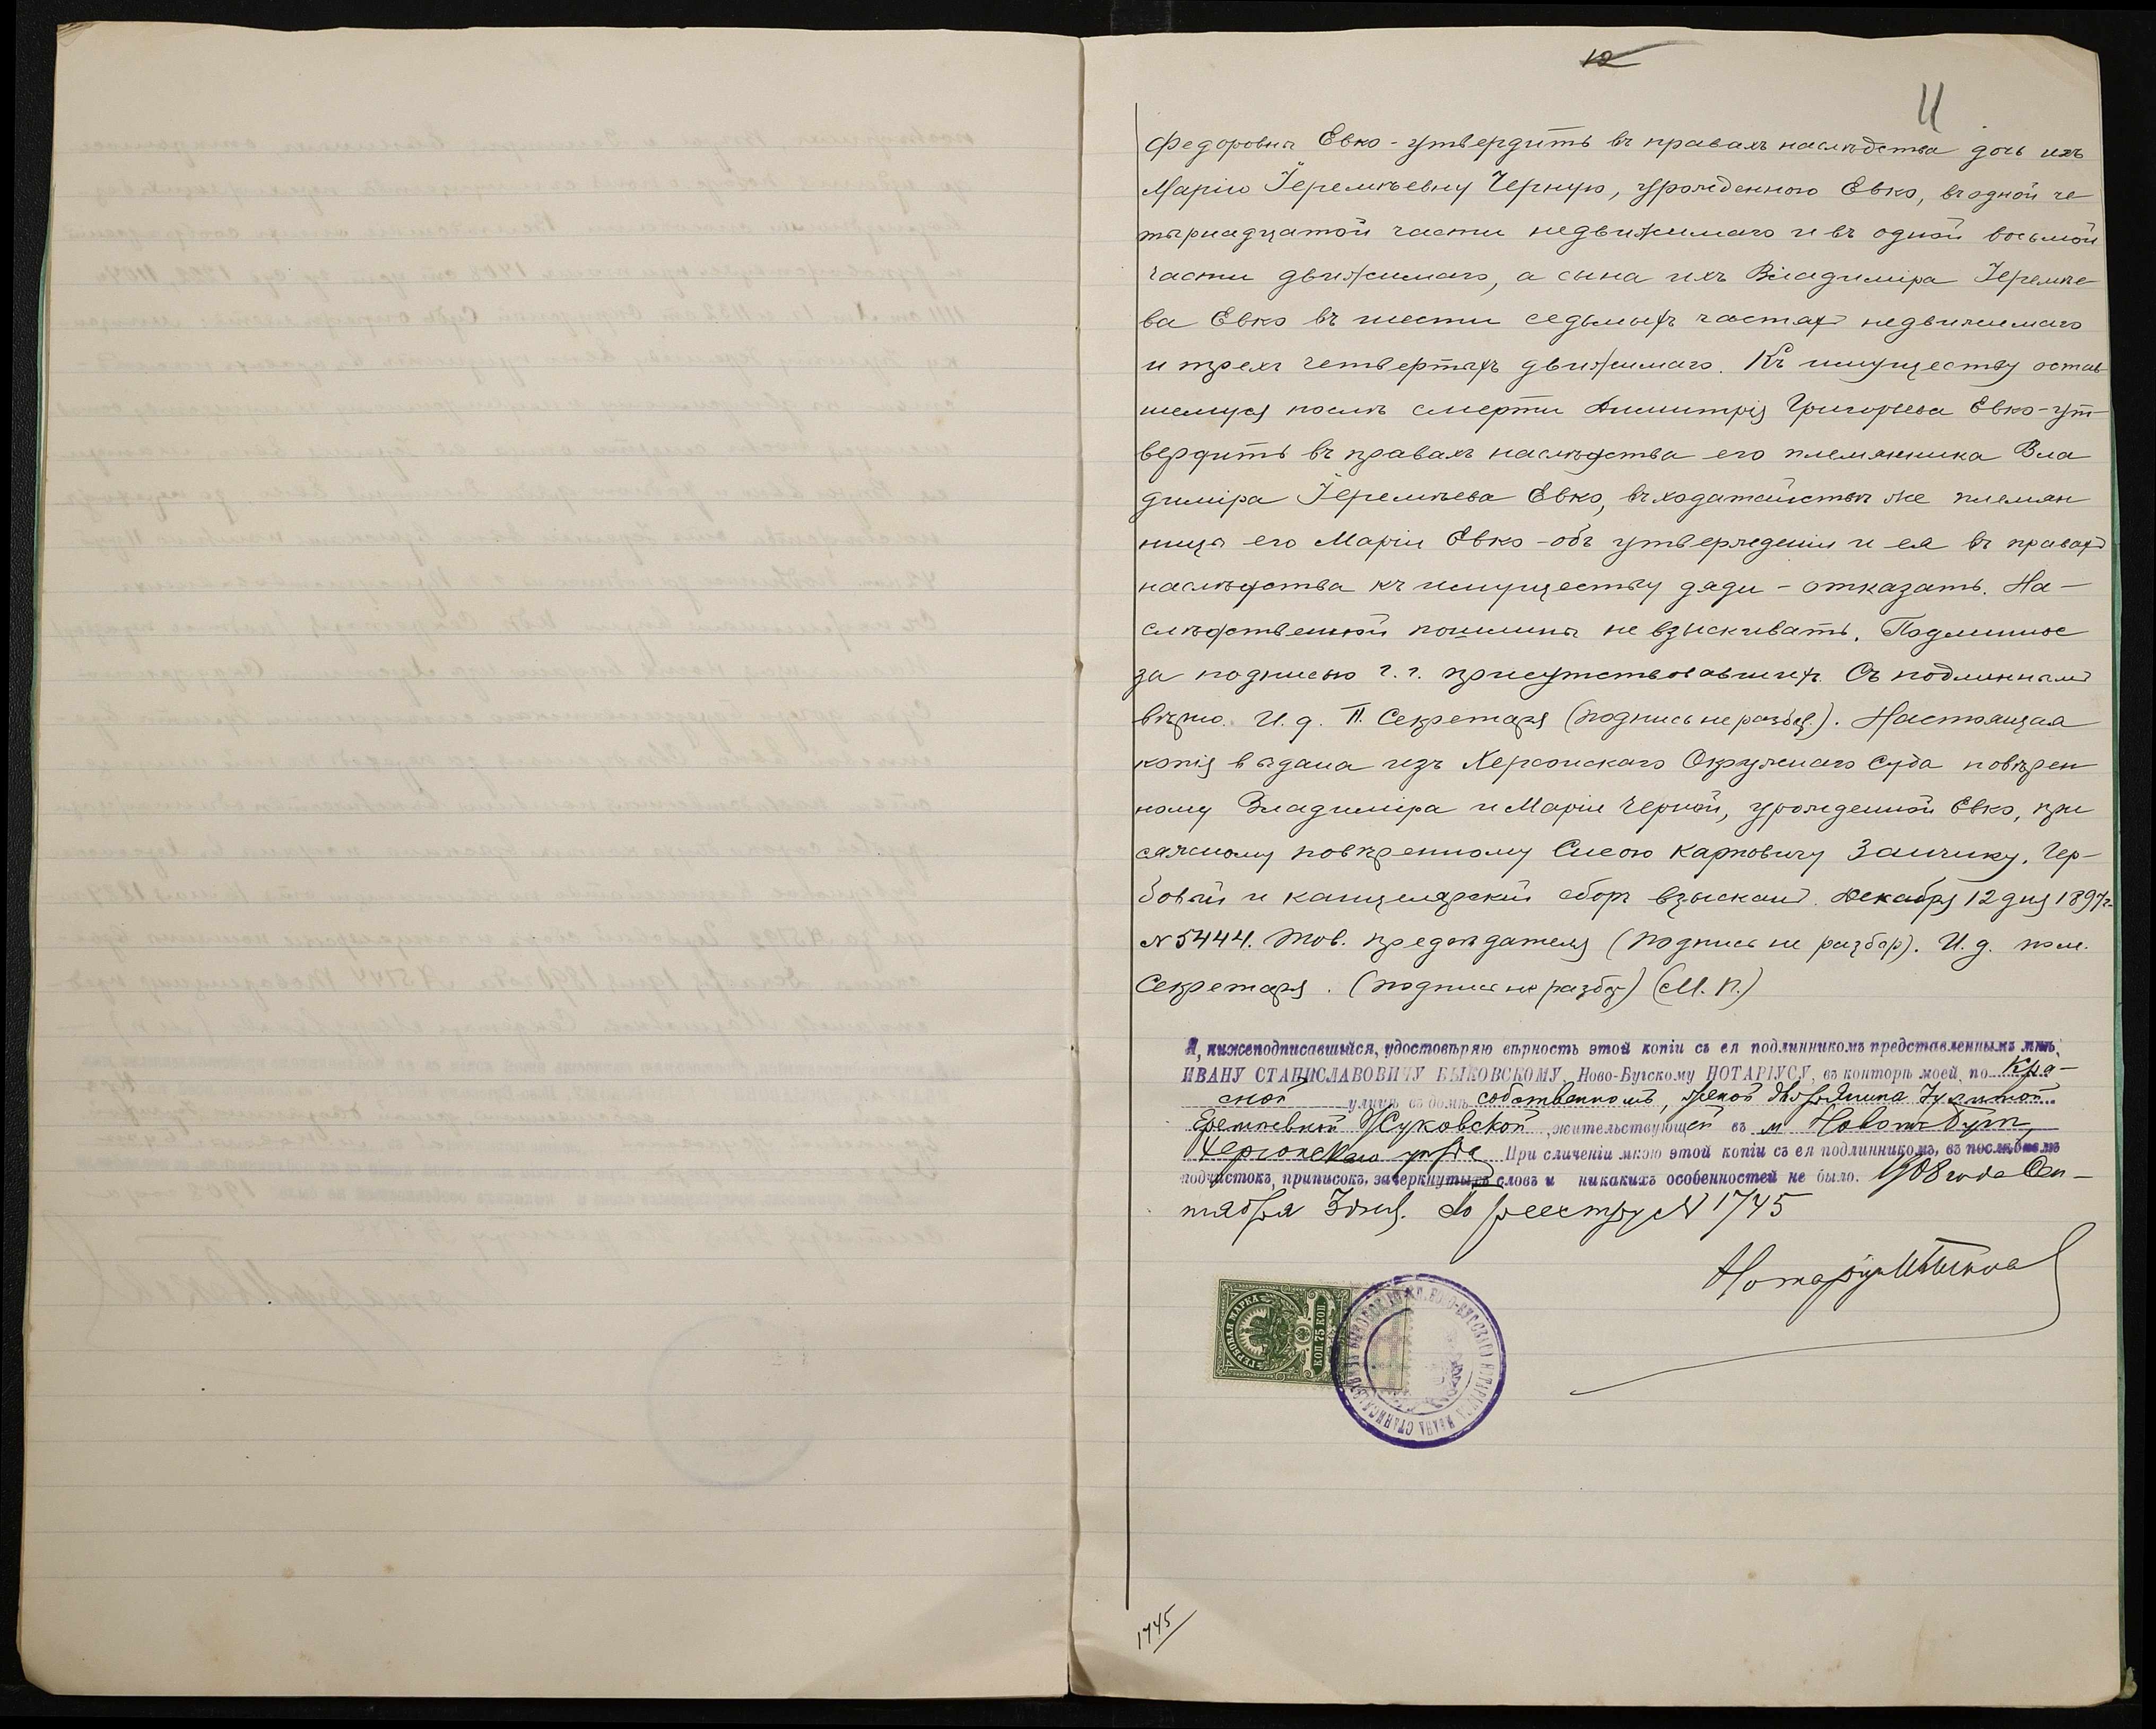 12
11
Федоровны Евко - утвердить въ правахъ наслѣдства дочь ихъ
Марію Іеремѣевну Черную, урожденною Евко, въ одной че
тырнадцатой части недвижимаго и въ одной восьмой
части движимаго, а сына ихъ Владиміра Іеремѣе
ва Евко въ шести седьмыхъ частяхъ недвижимаго
и трехъ четвертыхъ движимаго. Къ имуществу остав
шемуся послѣ смерти Димитрія Григорьева Евко - ут-
вердить въ правахъ наслѣдства его племянника Вла
диміра Іеремѣева Евко, въ ходатайствѣ же племян
ницы его Маріи Евко - объ утвержденіи и ея въ правахъ
наслѣдства къ имуществу дяди - отказать. На-
слѣдственной пошлины не взыскивать. Подлинное
за подписью г. г. присутствовавшихъ. Съ подлиннымъ
вѣрно. И. д. П. Секретаря (подпись не разбор.). Настоящая
копія выдана изъ Херсонскаго Окружнаго Суда повѣрен
ному Владиміра и Маріи Черной, урожденной Евко, при
сяжному повѣренному Карповичу Заичику. Гер-
бовый и канцелярскій сборъ взысканъ. Декабря 12 дня 1897 г.
№ 5444. Тов. предсѣдателя (подпись не разбор). И. д. пом.
Секретаря. (подпись не разбор) (М. П.)
Я, нижеподписавшійся, удостовѣряю вѣрность этой копіи съ ея подлинникомъ представленнымъ мнѣ,
ИВАНУ СТАНИСЛАВОВИЧУ БЫКОВСКОМУ, Ново-Бугскому НОТАРІУСУ, въ конторѣ моей, по Кра-
сной улицѣ въ домѣ собственномъ, женой дворянина
Еремѣевной Жуковской, жительствующей въ м Новомъ Бугѣ,
Херсонскаго уѣзда При сличеніи мною этой копіи съ ея подлинникомъ, въ послѣднемъ
подчистокъ, приписокъ, зачеркнутыхъ словъ и никакихъ особенностей не было. 1908 года Сен-
тября 3 дня. По реестру № 1745
Нотаріусъ
ГЕРБОВАЯ МАРКА
КОП 75 КОП
1745